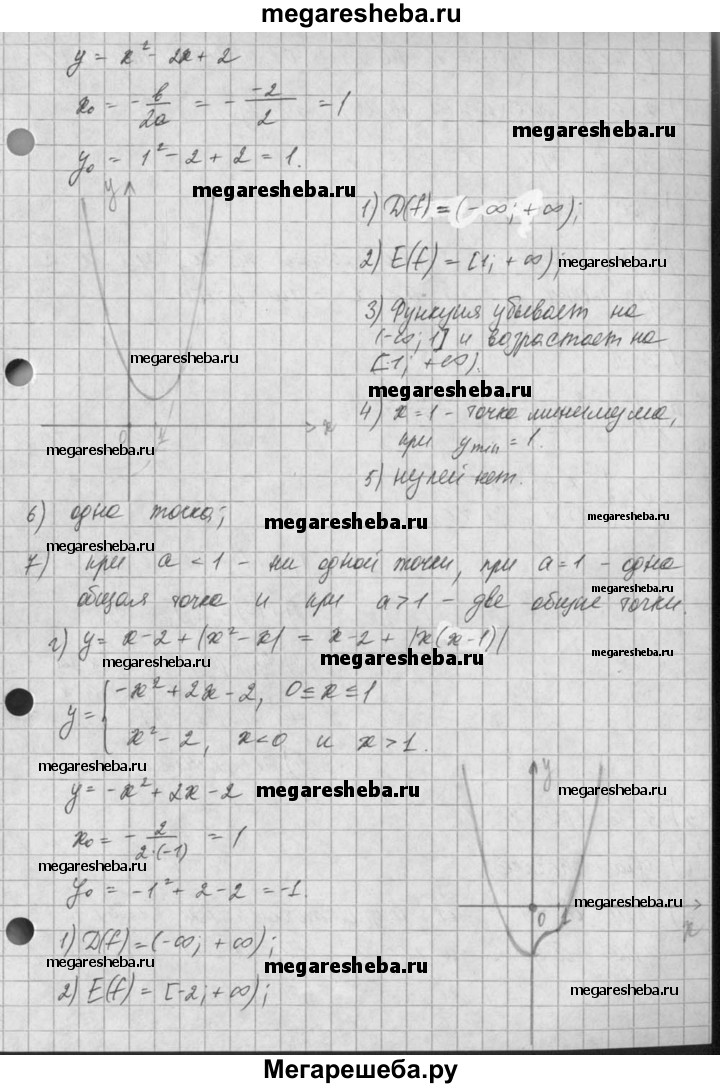 megaresheba.ru
y = x² - 2x + 2
x₀ = - b/2a = - -2/2 = 1
megaresheba.ru
y₀ = 1² - 2 + 2 = 1.
megaresheba.ru
y
1) D(f) = (-∞; +∞);
2) E(f) = [1; +∞);
megaresheba.ru
3) Функция убывает на
(-∞; 1] и возрастает на
[1; +∞).
megaresheba.ru
megaresheba.ru
4) x = 1 - точка минимума,
при y min = 1.
0 1 x
megaresheba.ru
megaresheba.ru
5) нулей нет.
6) одна точка;
megaresheba.ru
megaresheba.ru
megaresheba.ru
7) при a < 1 - ни одной точки, при a = 1 - одна
megaresheba.ru
общая точка и при a > 1 - две общие точки.
г) y = x - 2 + |x² - x| = x - 2 + |x(x - 1)|
megaresheba.ru
megaresheba.ru
y = { -x² + 2x - 2, 0 ≤ x ≤ 1
megaresheba.ru
x² - 2, x < 0 и x > 1.
megaresheba.ru
y = -x² + 2x - 2
megaresheba.ru
megaresheba.ru
y
x₀ = - 2/2·(-1) = 1
megaresheba.ru
y₀ = -1² + 2 - 2 = -1.
megaresheba.ru
0 1 x
1) D(f) = (-∞; +∞);
megaresheba.ru
megaresheba.ru
2) E(f) = [-2; +∞);
megaresheba.ru
Мегарешеба.ру